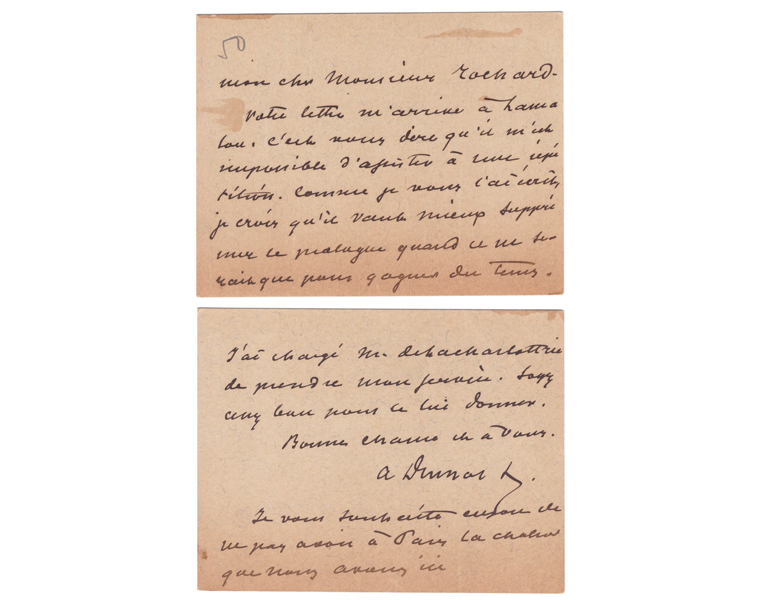 50
mon cher Monsieur Rochard.
Votre lettre m'arrive à Lama
lou. C'est vous dire qu'il m'est
impossible d'assister à une répé
tition. Comme je vous l'ai écrit,
je crois qu'il vaut mieux suppri
mer le prologue quand ce ne se-
rait que pour gagner du tems.
J'ai chargé M. delacharlotterie
de prendre mon service. Soyez
assez bon pour le lui donner.
Bonne chance et à vous.
A Dumas f.
Je vous souhaite encore de
ne pas avoir à Paris la chaleur
que nous avons ici